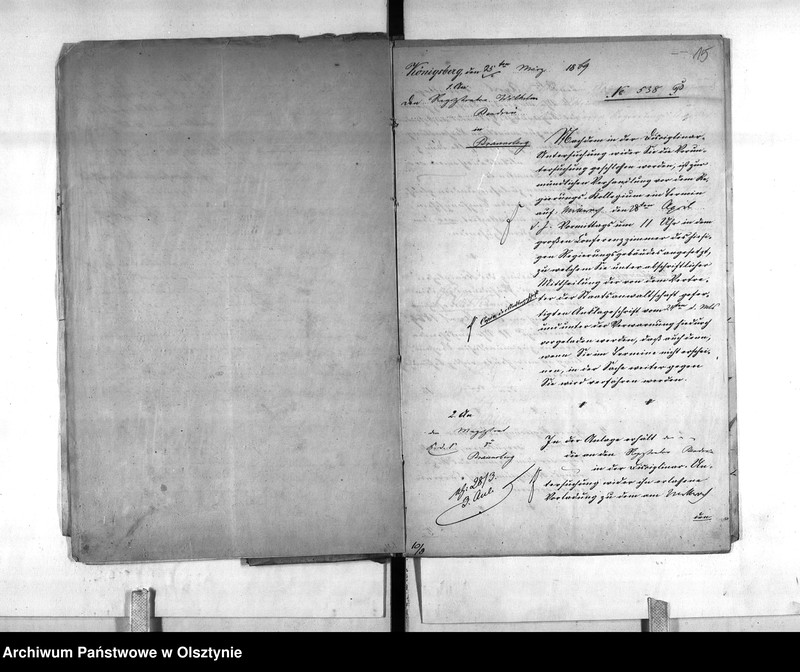 115
Königsberg, den 25ten März 1869
No 538
1. An
den Registrator Wilhelm
in
Braunsberg
Nachdem in der Disciplinar-
Untersuchung wider Sie die Vorun-
tersuchung geschlossen worden, ist zur
mündlichen Verhandlung vor dem Re-
gierungs-Kollegium ein Termin
auf Mittwoch den 28ten April
d. J. Vormittags um 11 Uhr in dem
großen Conferenzzimmer des hiesi-
gen Regierungsgebäudes angesetzt,
zu welchem Sie unter abschriftlicher
Mittheilung der von dem Vertre-
ter der Staatsanwaltschaft gefer-
tigten Anklageschrift vom d. Mts
und unter der Verwarnung hiedurch
vorgeladen werden, daß auch dann,
wenn Sie im Termine nicht erschei-
nen, in der Sache weiter gegen
Sie wird verfahren werden.
2. An
den Magistrat
zu
Braunsberg
In der Anlage erhält der
die an den Registrator
in der Disciplinar-Un-
tersuchung wider ihn erlassene
Vorladung zu dem am Mittwoch
den
Archiwum Państwowe w Olsztynie